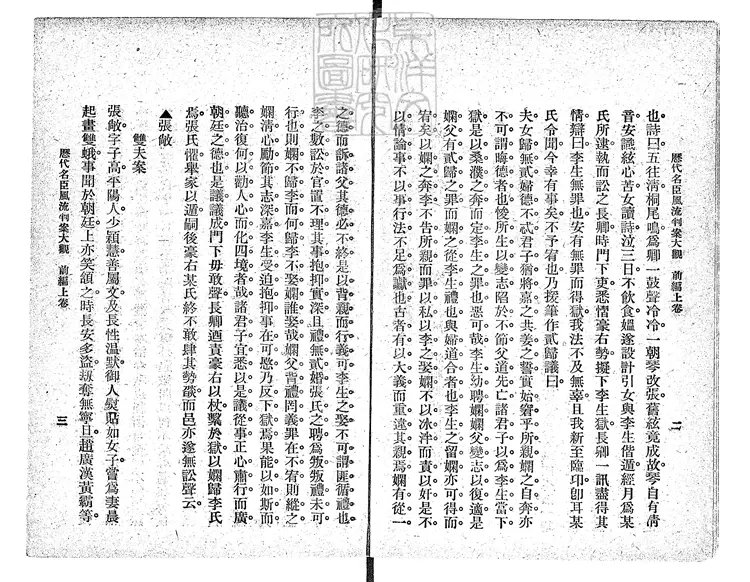 歷代名臣風流判案大觀 前編上卷
二
也詩曰五往淸桐尾鳴爲卿一鼓聲冷冷一朝琴改張舊絃竟成故琴自有淸
音安識絃心苦女讀詩泣三日不飲食媼遂設計引女與李生偕遁經月爲某
氏所逮執而訟之長卿時門下吏悉懾豪右勢擬下李生獄長卿一訊盡得其
情辯曰李生無罪也安有無罪而得獄我法不及無辜且我新至臨卭卽耳某
氏令聞今幸有事矣不予宥也乃援筆作貳歸議曰
夫女歸無貳婦德不忒君子猶將嘉之共姜之誓實始窘乎所親嫻之自奔亦
不可謂晦德者也懓所生以變志陷於不節父道先亡諸君子以爲李生當下
獄是以桑濮之奔而定李生之罪也惡可哉李生幼聘嫻嫻父變志以復適是
嫻父有貳歸之罪而嫻之從李生禮也與婦道合者也李生之留嫻亦可得而
宥矣以嫻之奔李不告所親而罪以私以李之娶嫻不以冰泮而責以奸是不
以情論事不以事行法不足爲讞也古者有以大義而重違其親焉嫻有從一
之德而訴諸父其德必不終是以背親而行義可李生之娶不可謂匪循禮也
李之數訟於官置不理其事抱抑實深且禮無貳婚張氏之聘爲叛叛禮未可
行也則嫻不歸李而何歸李不娶嫻誰娶哉嫻父背禮罔義罪在不宥則縱之
嫻淸心勵節其志深嘉李生受迫抱抑事在可愍乃反下獄焉果能以如斯而
聽治復何以勸人心而化四境者哉諸君子宜悉以是議從事正心肅行而廣
朝廷之德也是議議成門下毋敢聲長卿迺責豪右以杖繫於獄以嫻歸李氏
焉張氏懼舉家以遁嗣後豪右某氏終不敢肆其勢燄而邑亦遂無訟聲云
▲張敞
雙夫案
張敞字子高平陽人少穎慧善屬文及長性温默御人熨貼如女子嘗爲妻晨
起畫雙蛾事聞於朝廷上亦笑頷之時長安多盜刼奪無寧旦趙廣漢黃霸等
歷代名臣風流判案大觀 前編上卷
三